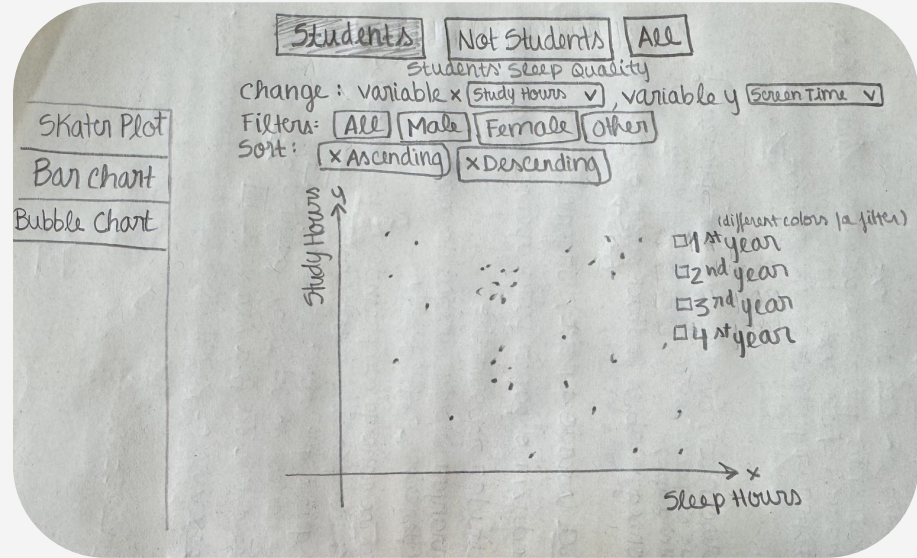 Students Not Students All
Students' Sleep Quality
Change: variable x Study Hours v , variable y Screen Time v
Filters: All Male Female Other
Sort: x Ascending x Descending
Skater Plot
Bar chart
Bubble Chart
y
Study Hours
(different colors /a filter)
1st year
2nd year
3rd year
4st year
x
Sleep Hours